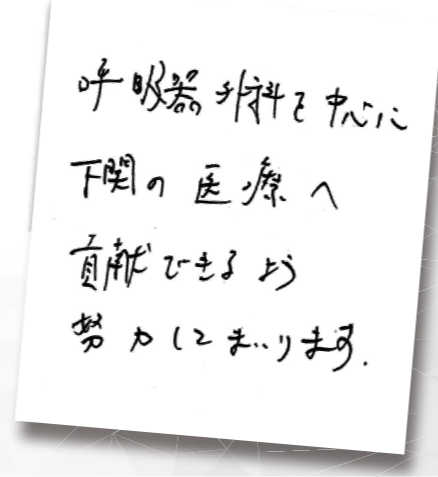 呼吸器外科を中心に
下関の医療へ
貢献できるよう
努力してまいります.